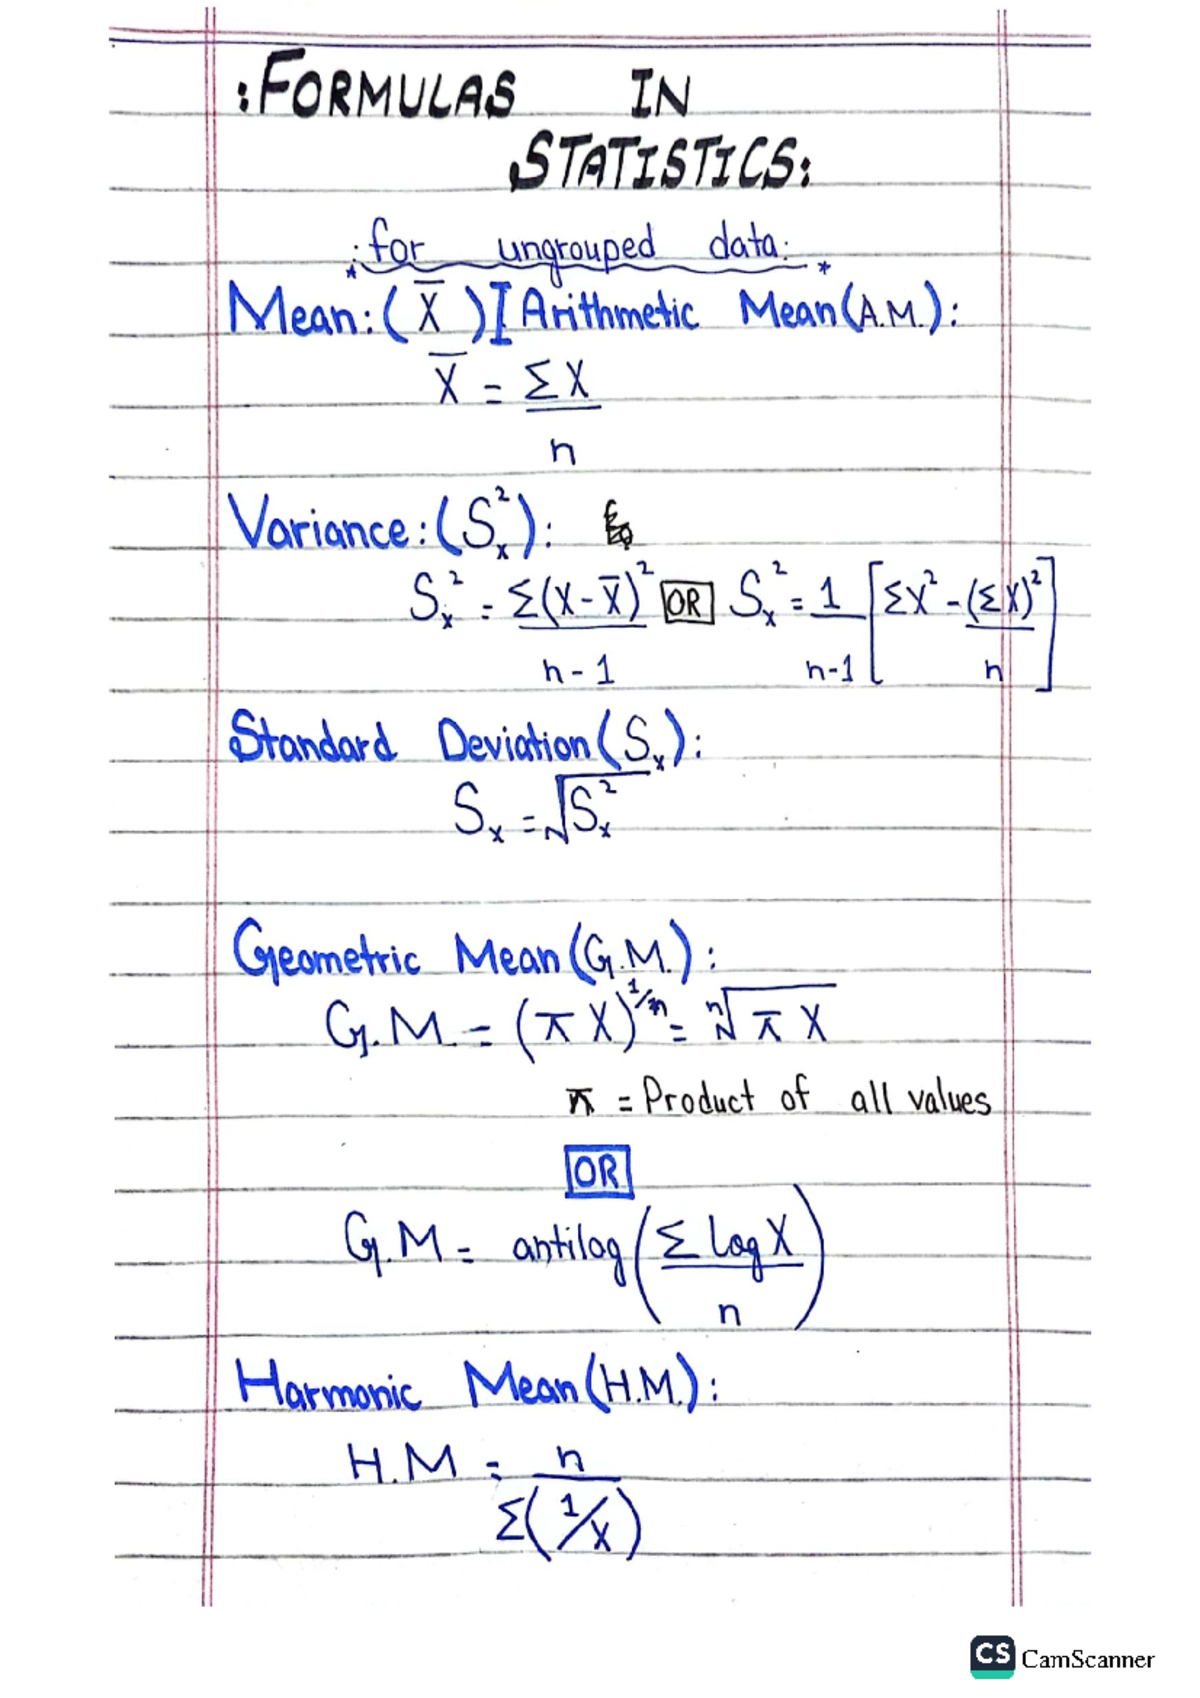 :FORMULAS IN
STATISTICS:
:for ungrouped data:
Mean:(X̅)I Arithmetic Mean(A.M.):
X̅ = ΣX
n
Variance:(Sx²):
Sx² = Σ(X-X̅)² OR Sx² = 1 [ΣX² - (ΣX)²]
n-1 n-1 n
Standard Deviation(Sx):
Sx = √Sx²
Geometric Mean(G.M.):
G.M. = (π X)^1/n = ⁿ√π X
π = Product of all values
OR
G.M = antilog(Σ log X)
n
Harmonic Mean(H.M.):
H.M = n
Σ(1/X)
CS CamScanner